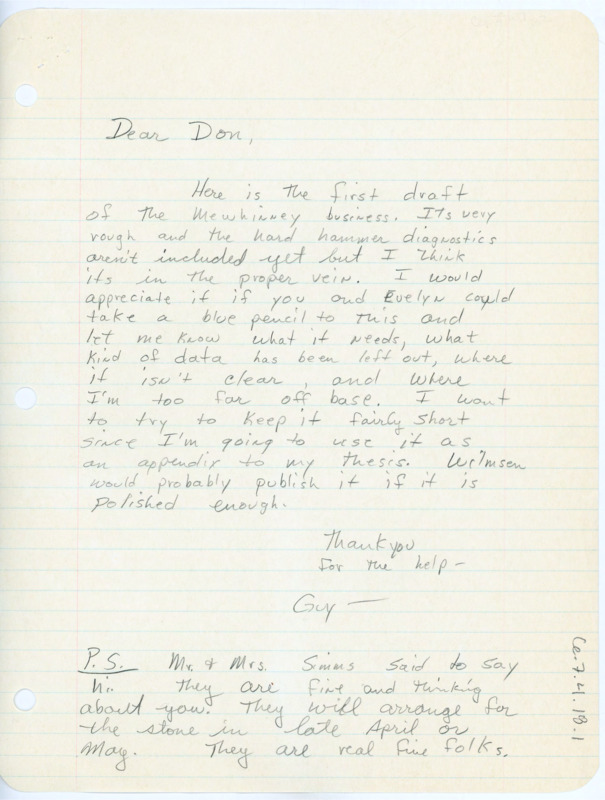 Dear Don,
Here is the first draft
of the Mewhinney business. Its very
rough and the hard hammer diagnostics
aren't included yet but I think
its in the proper vein. I would
appreciate it if you and Evelyn could
take a blue pencil to this and
let me know what it needs, what
kind of data has been left out, where
it isn't clear, and where
I'm too far off base. I want
to try to keep it fairly short
since I'm going to use it as
an appendix to my thesis. Wilmsen
would probably publish it if it is
polished enough.
Thankyou
for the help -
Guy —
P.S. Mr. & Mrs. Simms said to say
hi. They are fine and thinking
about you. They will arrange for
the stone in late April or
May. They are real fine folks.
Ce.7.4.18.1